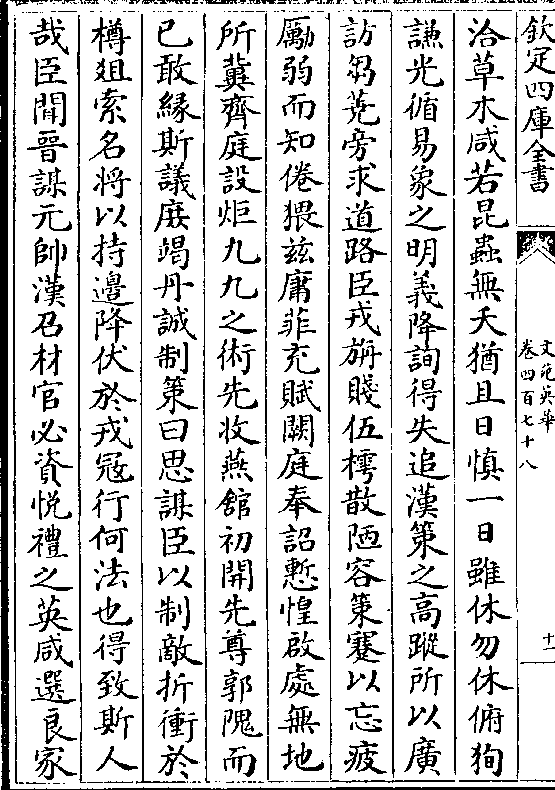 欽定四庫全書
文苑英華
卷四百七十八
十一
洽草木咸若昆蟲無夭猶且日慎一日雖休勿休俯狥
謙光循易象之明義降詢得失追漢策之高蹤所以廣
訪芻蕘旁求道路臣戎旃賤伍樗散陋容策蹇以忘疲
勵弱而知倦猥兹庸菲充賦闕庭奉詔慙惶啟處無地
所冀齊庭設炬九九之術先收燕舘初開先尊郭隗而
已敢縁斯議庶竭丹誠制策曰思謀臣以制敵折衝於
樽俎索名將以持邊降伏於戎冦行何法也得致斯人
哉臣聞晉謀元帥漢召材官必資悦禮之英咸選良家